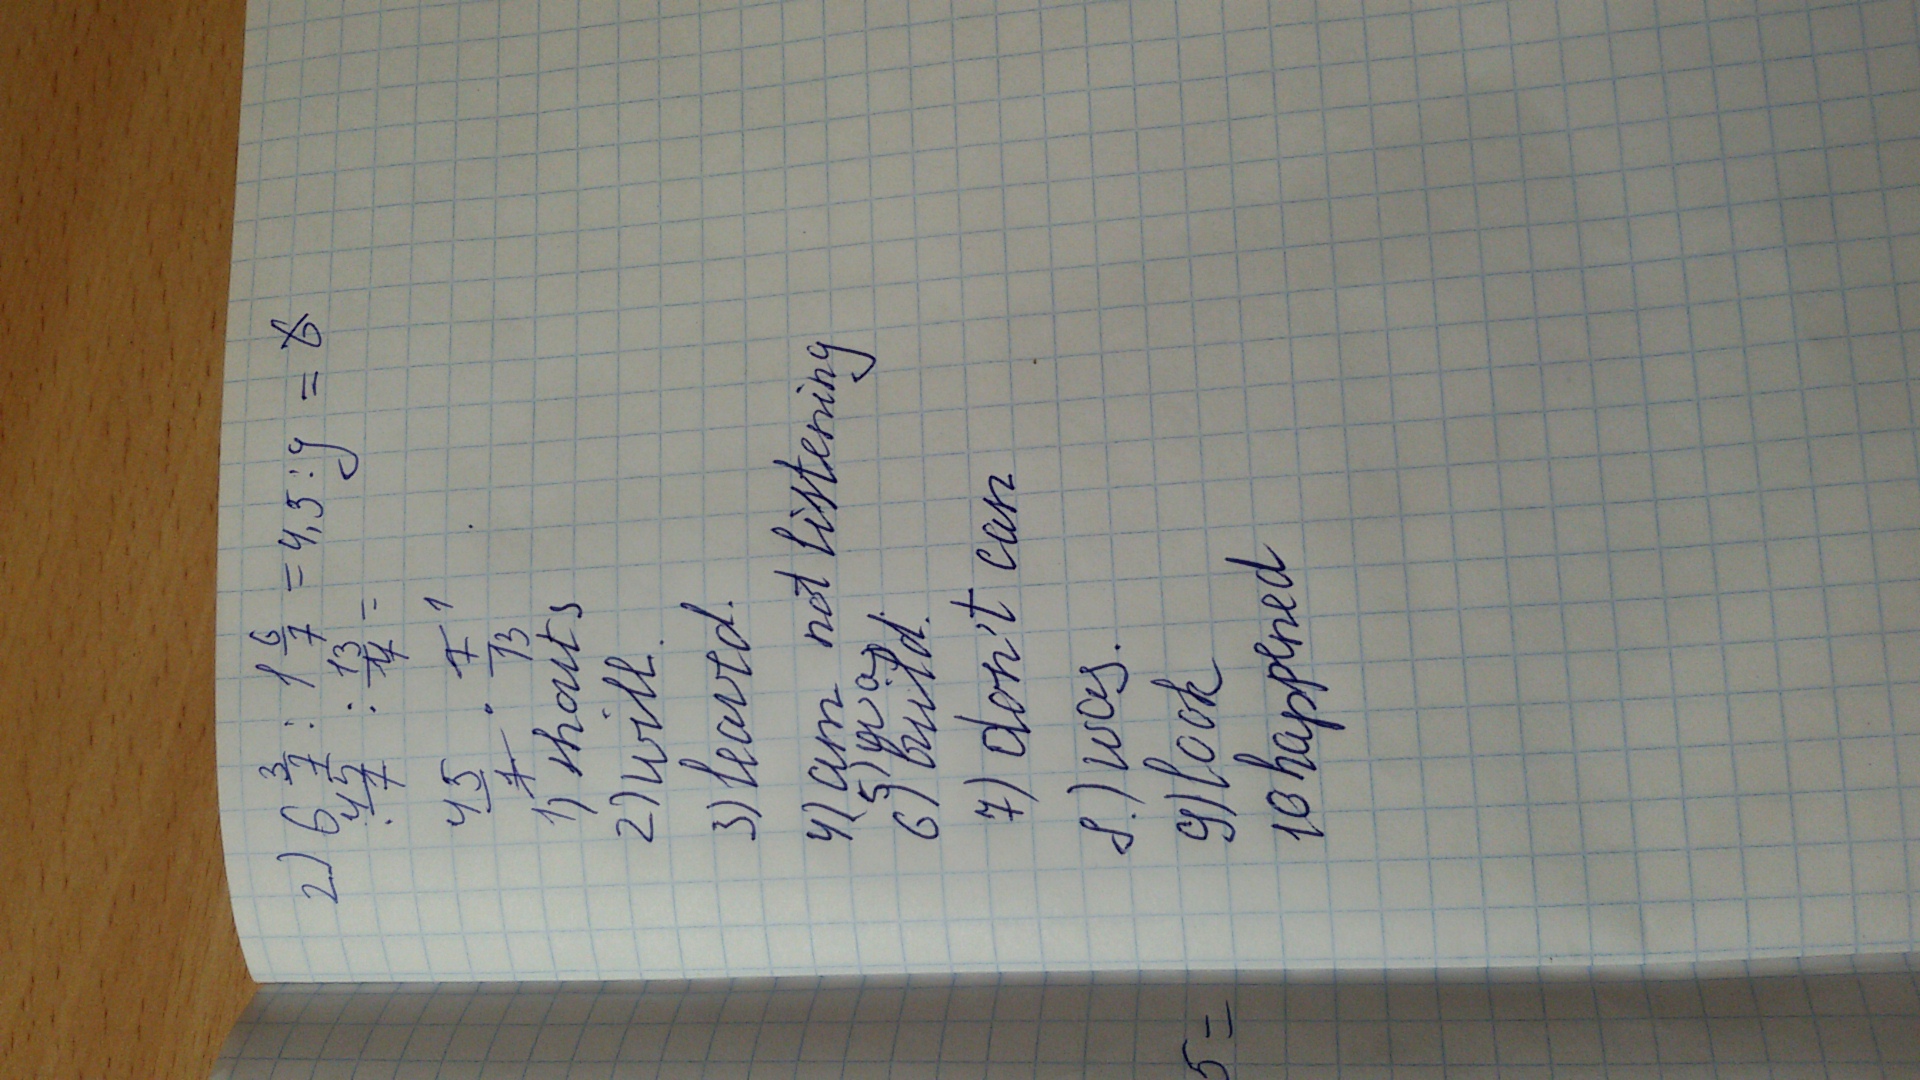 2) 6 3/7 : 1 6/7 = 4,5 : y = 6
45/7 : 13/7 =
45/7 · 7/13 1
1) shouts
2) will.
3) heard.
4) am not listening
5)
6) build.
7) don't can
8.) was.
9) look
10 happened
5 =